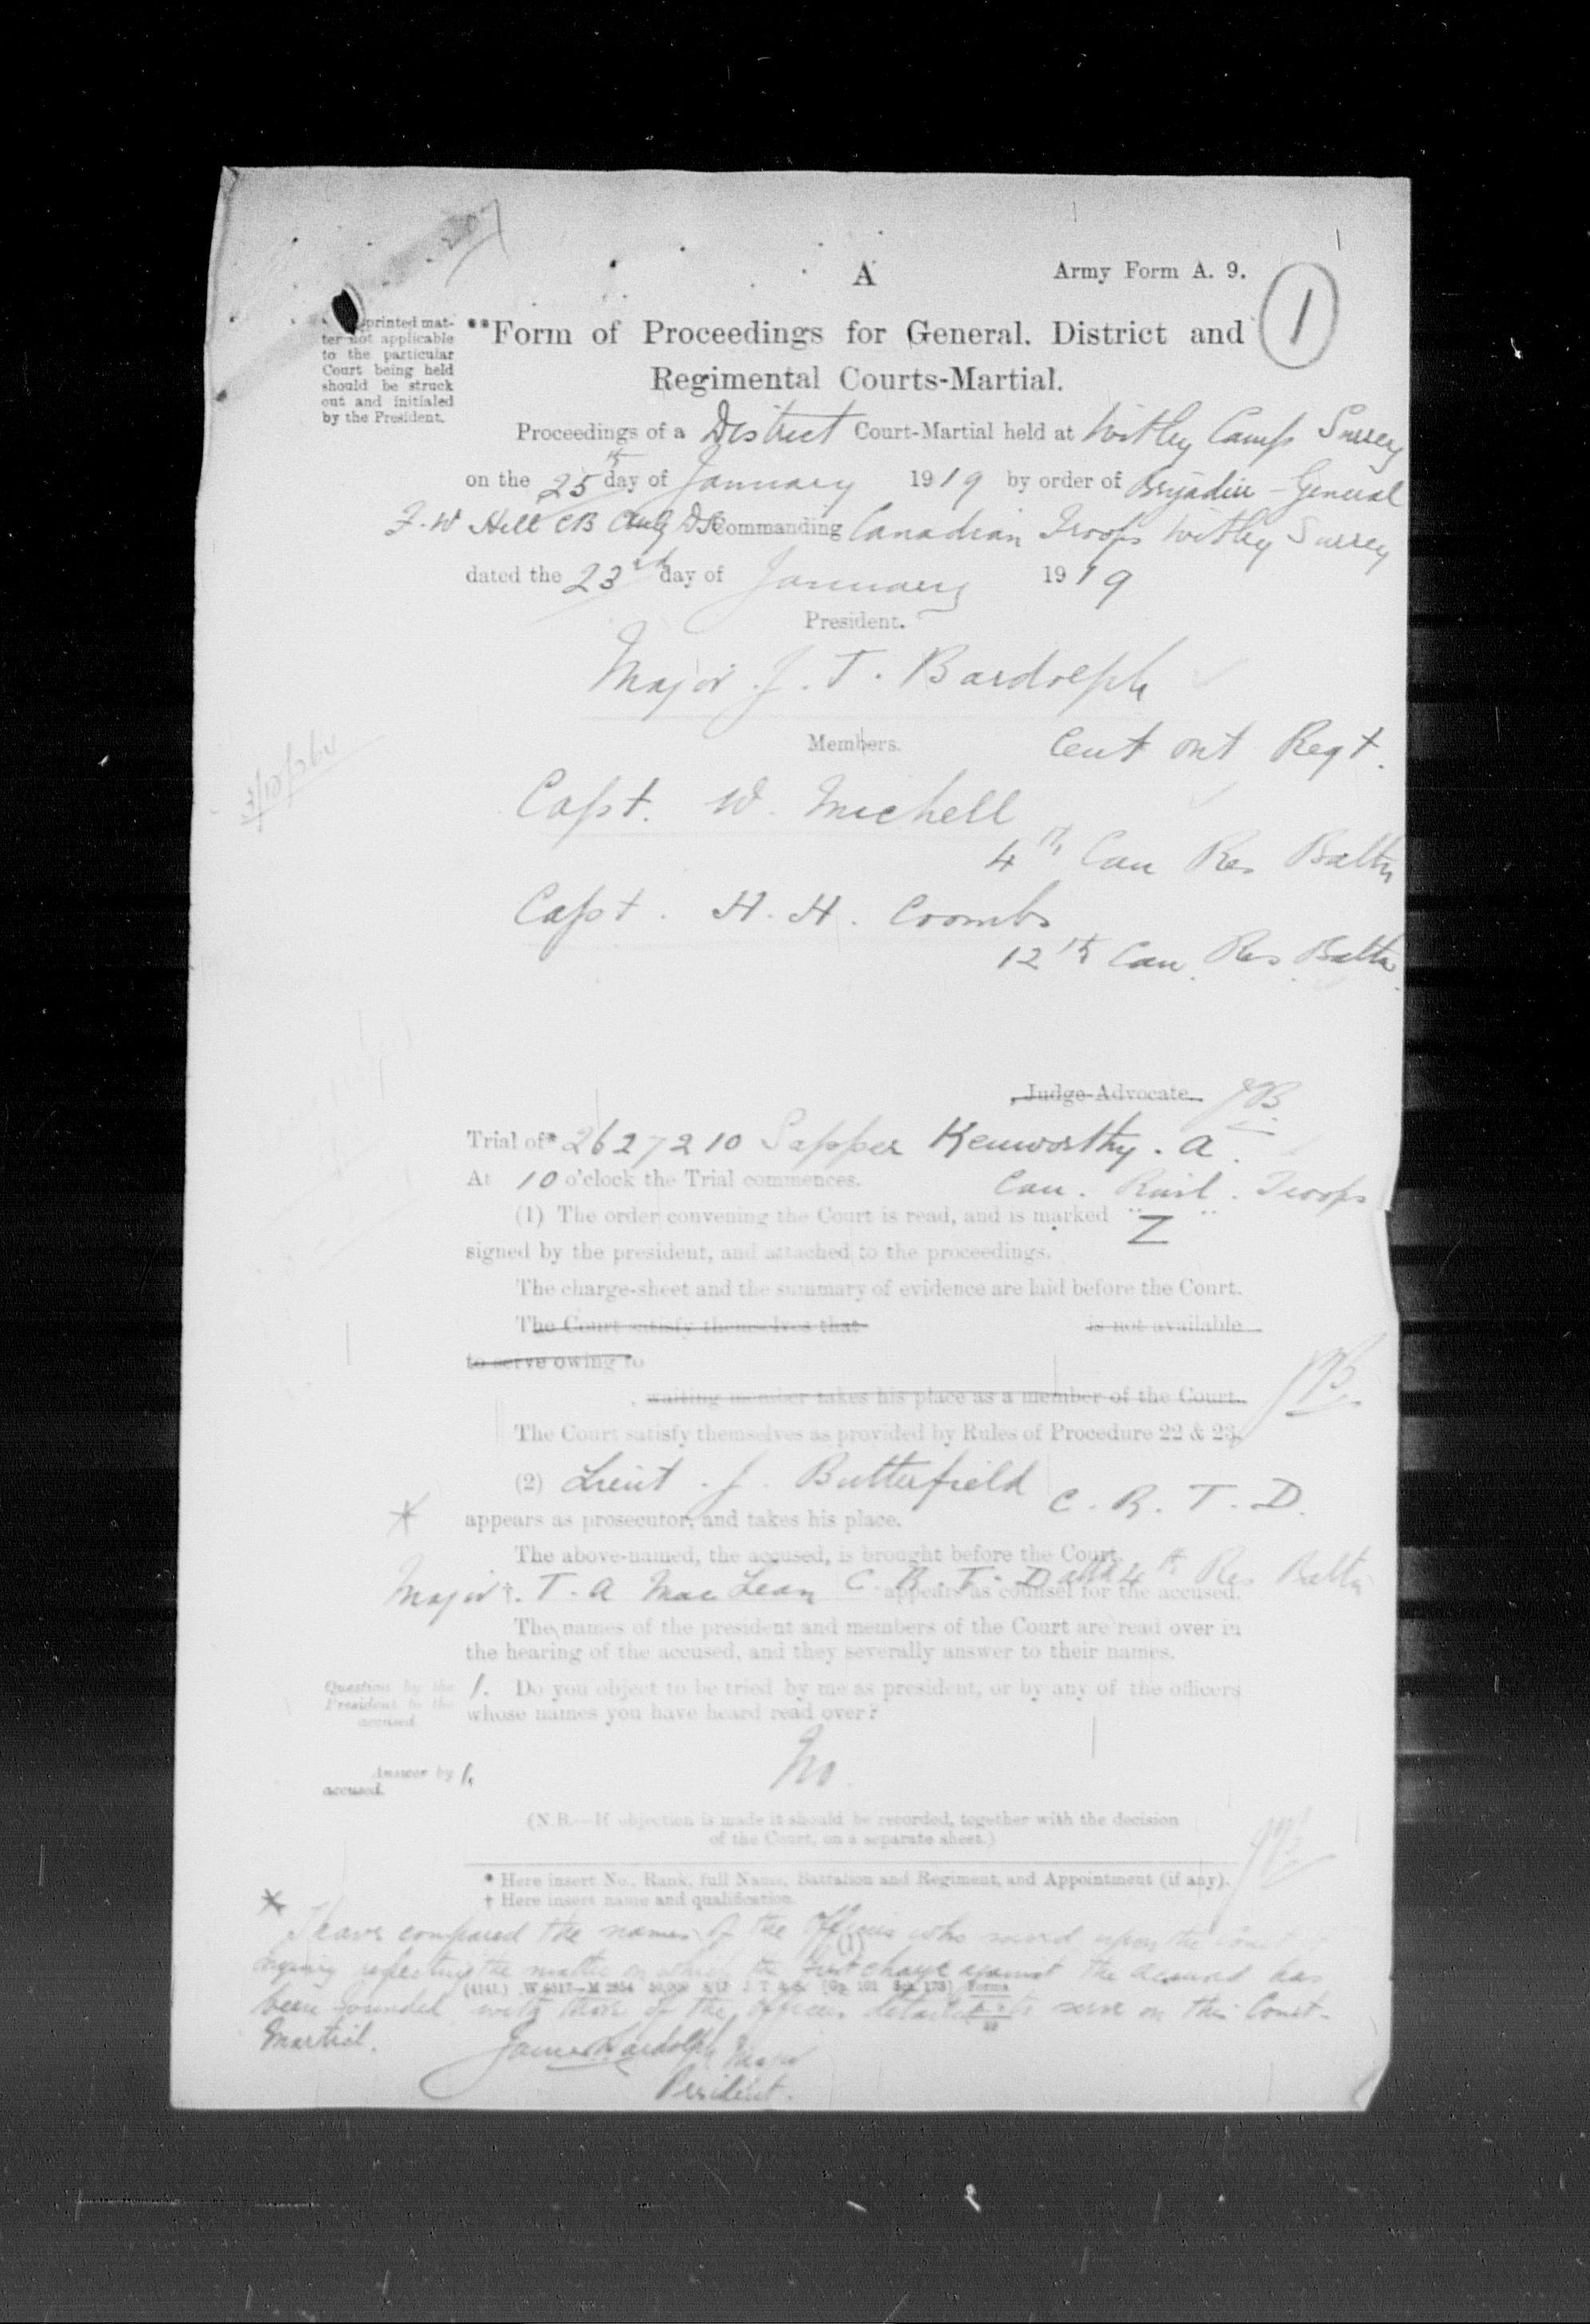 A
Army Form A. 9.
1
printed mat-
ter not applicable
to the particular
Court being held
should be struck
out and initialed
by the President.
**Form of Proceedings for General, District and
Regimental Courts-Martial.
Proceedings of a District Court-Martial held at Witley Camp Surrey
on the 25th day of January 1919 by order of Brigadier-General
F. W Hill CB CMG DSO Commanding Canadian Troops Witley Surrey
dated the 23rd day of January 1919
President.
Major J. T. Bardolph
Members.
Cent Ont Regt.
Capt. W. Michell
4th Can Res Battn
Capt. H. H. Coombs
12th Can. Res. Battn.
Judge-Advocate. JB
Trial of* 2627210 Sapper Kenworthy. A.
At 10 o'clock the Trial commences.
Can. Rail. Troops
(1) The order convening the Court is read, and is marked "Z"
signed by the president, and attached to the proceedings.
The charge-sheet and the summary of evidence are laid before the Court.
The Court satisfy themselves that is not available
to serve owing to
waiting member takes his place as a member of the Court.
JB.
The Court satisfy themselves as provided by Rules of Procedure 22 & 23.
(2) Lieut. J. Butterfield C. R. T. D.
appears as prosecutor, and takes his place.
The above-named, the accused, is brought before the Court.
Major †. T. A MacLean C. R. T. D attd 4th Res Battn
appears as counsel for the accused.
The names of the president and members of the Court are read over in
the hearing of the accused, and they severally answer to their names.
Question by the
President to the
accused.
1. Do you object to be tried by me as president, or by any of the officers
whose names you have heard read over?
Answer by
accused.
1.
No.
(N.B.—If objection is made it should be recorded, together with the decision
of the Court, on a separate sheet.)
JB
* Here insert No., Rank, full Name, Battalion and Regiment, and Appointment (if any).
† Here insert name and qualification.
* I have compared the names of the officers who served upon the Court of
inquiry respecting the matter on which the first charge against the accused has
been founded, with those of the officers detailed to serve on this Court-
Martial.
James Bardolph Major
President.